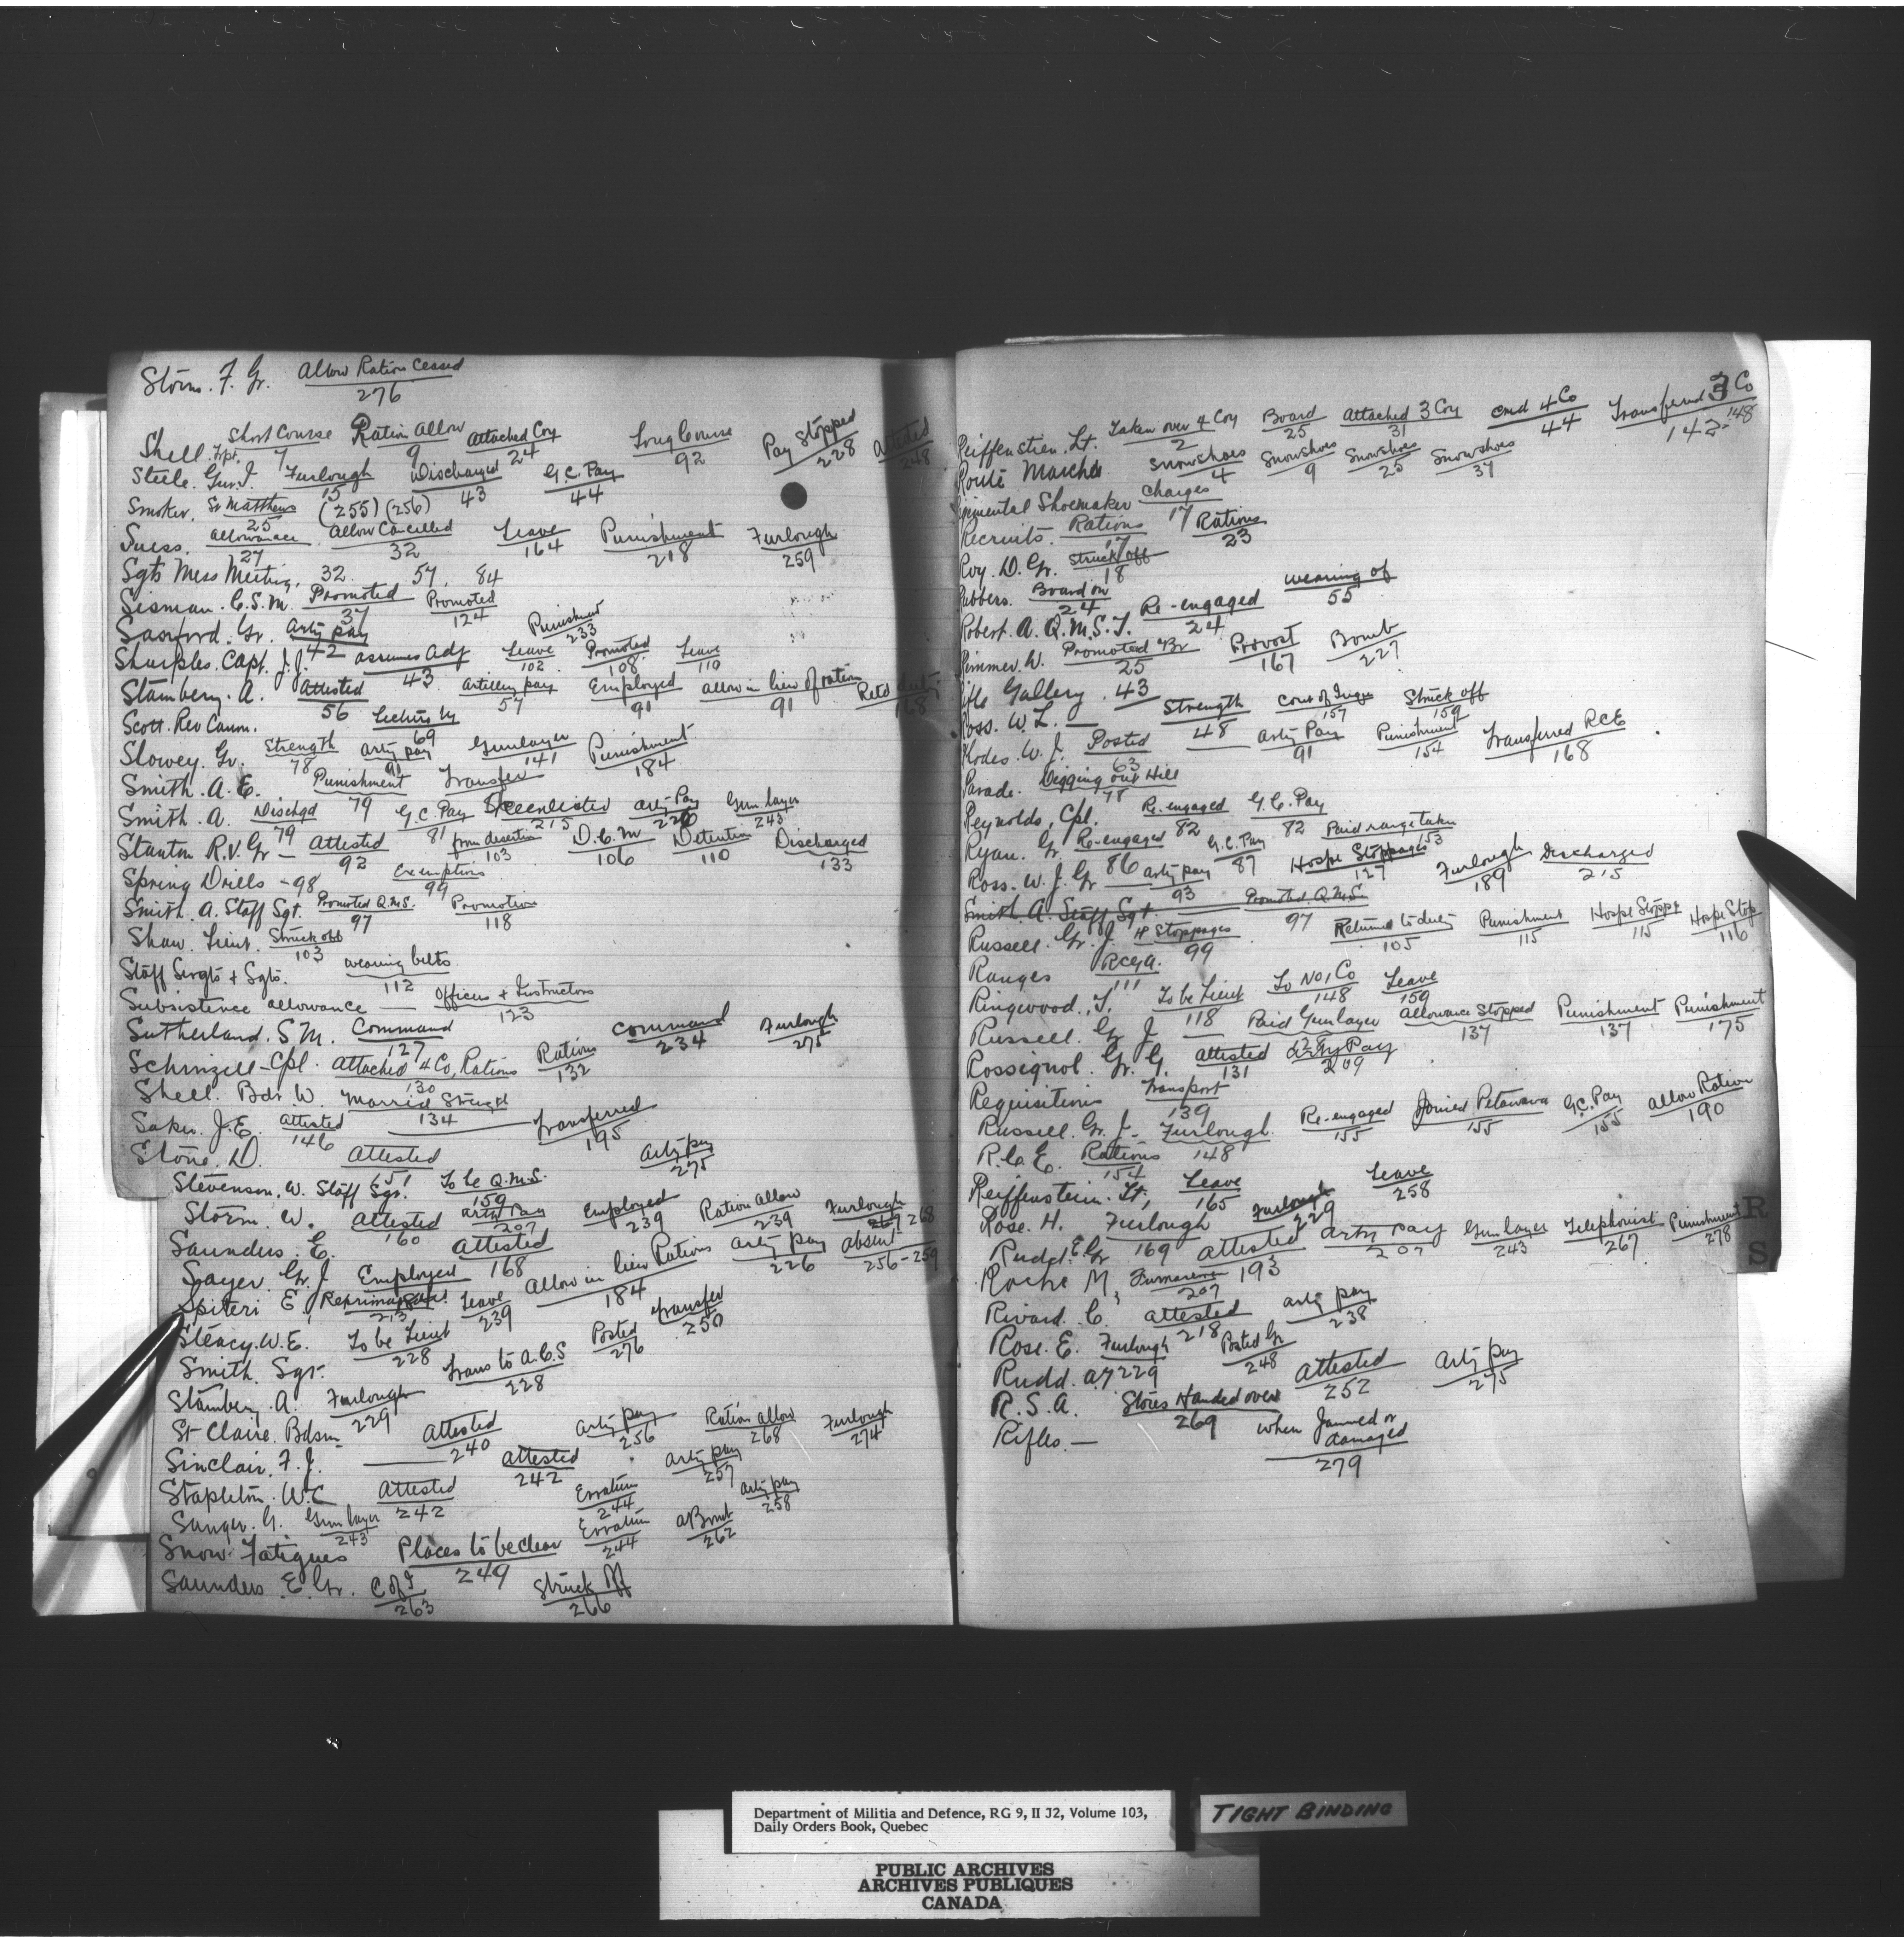 Storm. F. Gr. Allow Ration Ceased 276
Shell. Short Course 7 Ration Allow 9 Attached Coy 24 Long Course 92 Pay Stopped 228 Attested 248
Steele. Gnr. J. Furlough 15 Discharged 43 G.C. Pay 44
Smoker, St Matthews 25 (255) (256)
Suess. allowance 27 Allow Cancelled 32 Leave 164 Punishment 218 Furlough 259
Sgts Mess Meeting, 32. 57. 84
Sisman. C.S.M. Promoted 37 Promoted 124
Sanford. Gr. Arty pay 42 Punishmt 233
Sharples. Capt. J.J. assumes Adj 43 Leave 102 Promoted 108 Leave 110
Stambery. A. Attested 56 Artillery pay 57 Employed 91 allow in lieu of ration 91 Retd duty 168
Scott. Rev Canon. Lecture by 69
Slowey. Gr. Strength 78 arty pay 91 Gunlayer 141 Punishment 184
Smith. A. E. Punishment 79 Transfer
Smith. A. Dischgd 79 G.C. Pay 81 Reenlisted 215 arty Pay 226 Gun layer 243
Stanton R.V. Gr — Attested 92 from desertion 103 D.C.M 106 Detention 110 Discharged 133
Spring Drills - 98 Exemptions 99
Smith. A. Staff Sgt. Promoted Q.M.S. 97 Promotion 118
Shaw. Lieut. Struck off 103
Staff Sergts + Sgts. wearing belts 112
Subsistence allowance — Officers + Instructors 123
Sutherland. S. M. Command 127 Command 234 Furlough 275
Schinzell - Cpl. Attached 4 Co, Rations 130 Rations 132
Shell. Bdr. W. Married Strength 134
Saker. J.E. Attested 146 Transferred 195
Stone. D. Attested 151 Arty pay 275
Stevenson. W. Staff Sgr. To be Q.M.S. 159
Storm. W. Attested 160 Arty Pay 207 Employed 239 Ration allow 239 Furlough 268
Saunders. E. Attested 168
Sayer Gr. J. Employed 184 Allow in lieu Rations 184 arty pay 226 absent 256-259
Spiteri E, Reprimanded 213 Leave 239
Steacy. W.E. To be Lieut 228 Posted 276 Transfer 250
Smith. Sgr. Trans to A.C.S 228
Stambery. A. Furlough 229
St Claire. Bdsm Attested 240 Arty pay 256 Ration allow 268 Furlough 274
Sinclair. F. J. Attested 242 arty pay 257
Stapleton. W.C Attested 242 Erratum 244 arty pay 258
Sanger. G. Gun layer 243 Erratum 244 262
Snow Fatigues Places to be clear 249
Saunders E. Gr. C of I 263 Struck off 266
Reiffenstien. Lt. Taken over 4 Coy 2 Board 25 Attached 3 Coy 31 Cmd 4 Co 44 Transferred 3 Co 142-148
Route Marches Snowshoes 4 Snowshoes 9 Snowshoes 25 Snowshoes 37
Regimental Shoemaker Charges 17
Recruits. Rations 17 Rations 23
Roy. D. Gr. Struck off 18
Rubbers. Board on 24 wearing of 55
Robert. A. Q.M.S.I. Re-engaged 24
Rimmer. W. Promoted Br 25 Provost 167 Bomb 227
Rifle Gallery. 43
Ross. W. L. — Strength 48 Court of Inqu 157 Struck off 159
Rhodes. W. J. Posted 63 Arty Pay 91 Punishment 154 Transferred RCE 168
Parade. Digging out Hill 78
Reynolds, Cpl. Re-engaged 82 G.C. Pay 82
Ryan. Gr. Re-engaged 86 G.C. Pay 87 Paid range taken 153
Ross. W. J. Gr — arty pay 93 Hospe Stoppages 127 Furlough 189 Discharged 215
Smith A. Staff Sgt. Promoted Q.M.S. 97
Russell. Gr. J. H Stoppages 99 Returned to duty 105 Punishment 115 Hospe Stoppe 115 Hospe Stop 116
Ranges RCGA. 111
Ringwood., T. To be Lieut 118 To No 1 Co 148 Leave 159
Russell. Gr J — Paid Gunlayer 128 Allowance Stopped 137 Punishment 137 Punishment 175
Rossignol. Gr. G. Attested 131 Arty Pay 209
Requisitions Transport 139
Russell. Gr. J — Furlough 148 Re-engaged 155 Joined Petawawa 155 G.C. Pay 155 allow Ration 190
R.C.E. Rations 154
Reiffenstein. Lt, Leave 165 Leave 258
Rose. H. Furlough 169 Furlough 229
Rudd. E. Gr Attested 193 arty pay 207 Gun layer 243 Telephonist 267 Punishment 278
Roche M, 207
Rivard. C. Attested 218 arty pay 238
Rose. E. Furlough 229 Posted Gr 248
Rudd. A. Attested 252 Arty pay 275
R.S.A. Stores Handed over 269
Rifles. — when Jammed or damaged 279
R
S
Department of Militia and Defence, RG 9, II J2, Volume 103,
Daily Orders Book, Quebec
TIGHT BINDING
PUBLIC ARCHIVES
ARCHIVES PUBLIQUES
CANADA